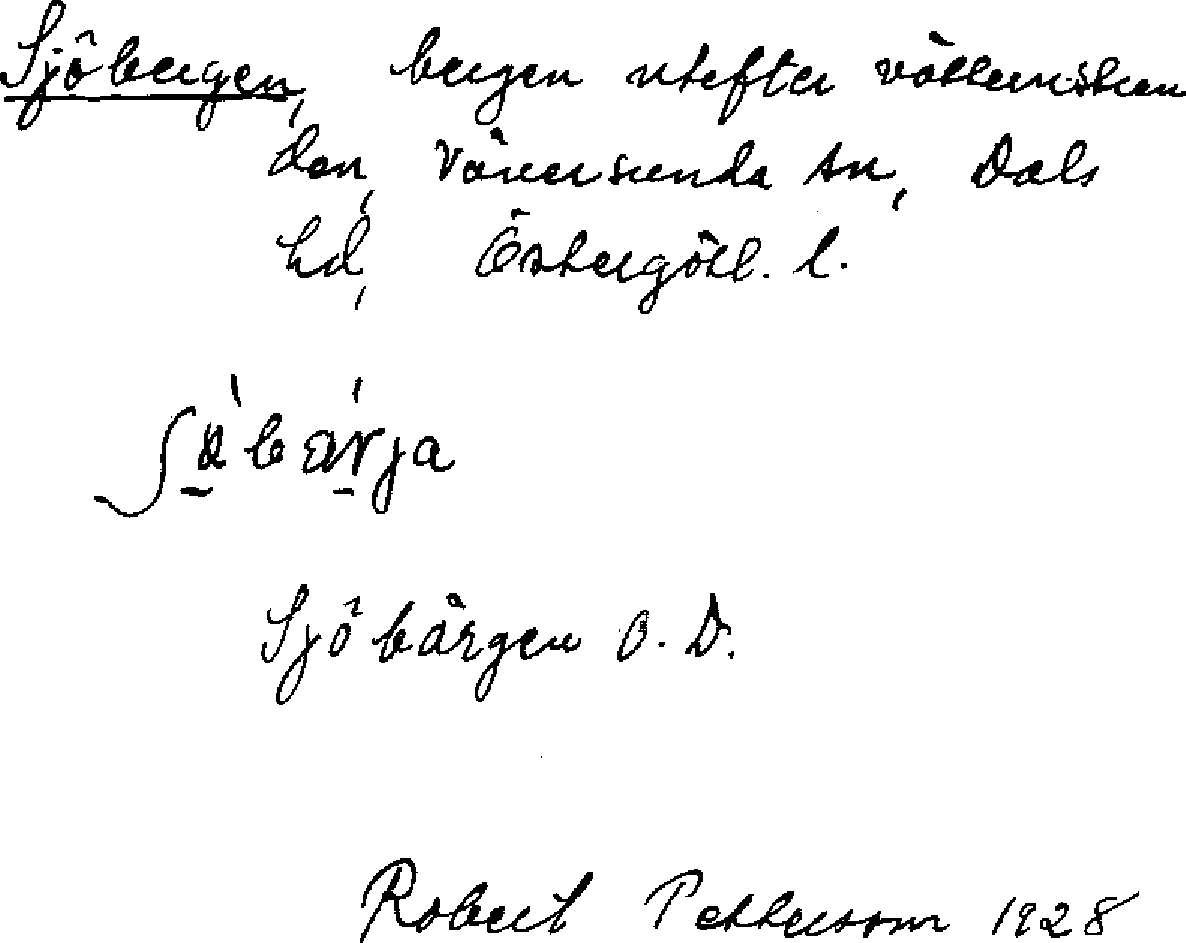 Sjöbergen, bergen utefter vätternstran
den, Väversunda sn, Dals
hd, Östergötl. l.
Sjöbärgen O. D.
Robert Pettersson 1928